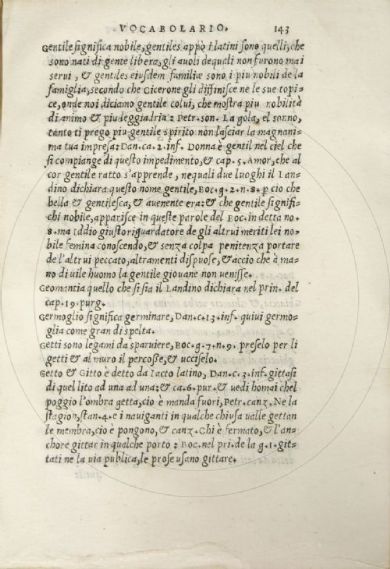 VOCABOLARIO. 143
Gentile significa nobile, gentiles appo i latini sono quelli, che
sono nati di gente libera, gli auoli dequali non furono mai
serui, & gentiles eiusdem familiæ sono i piu nobili de la
famiglia, secondo che Cicerone gli diffinisce ne le sue topi-
ce, onde noi diciamo gentile colui, che mostra piu nobilità
di animo & piu leggiadria: Petr. son. La gola, el sonno,
tanto ti prego piu gentile spirito non lasciar la magnani-
ma tua impresa: Dan. ca. 2. inf. Donna è gentil nel ciel che
si compiange di questo impedimento, & cap. 5. Amor, che al
cor gentile ratto s'apprende, nequali due luoghi il Lan-
dino dichiara questo nome gentile, Boc. g. 2. n. 8. p cio che
bella & gentilesca, & auenente era: & che gentile signifi-
chi nobile, apparisce in queste parole del Boc. in detta no.
8. ma Iddio giusto riguardatore de gli altrui meriti lei no-
bile femina conoscendo, & senza colpa penitenza portare
de l'altrui peccato, altramenti dispuose, & accio che à ma-
no di uile huomo la gentile giouane non uenisse.
Geomantia quello che si sia il Landino dichiara nel prin. del
cap. 19. purg.
Germoglio significa germinare, Dan. c. 13. inf. quiui germo-
glia come gran di spelta.
Getti sono legami da sparuiere, Boc. g. 7. n. 9. preselo per li
getti & al muro il percosse, & uccíselo.
Getto & Gitto è detto da Iacto latino, Dan. c. 3. inf. gittasi
di quel lito ad una ad una: & ca. 6. pur. & uedi homai chel
poggio l'ombra getta, cio è manda fuori, Petr. canz. Ne la
stagion, stan. 4. e i nauiganti in qualche chiusa ualle gettan
le membra, cio è pongono, & canz. Chi è fermato, & l'an-
chore gittar in qualche porto: Boc. nel pri. de la g. 1. git-
tati ne la uia publica, le prose usano gittare.